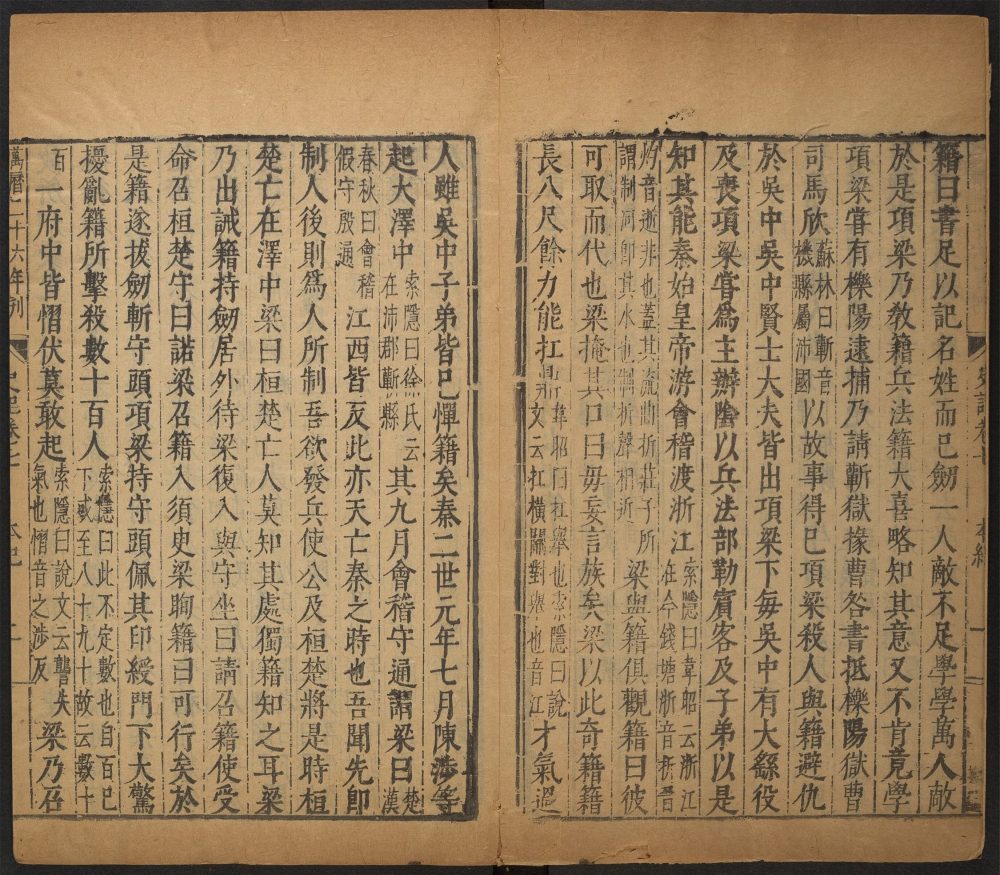 史記卷七
本紀
一
籍曰書足以記名姓而已劒一人敵不足學學萬人敵
於是項梁乃敎籍兵法籍大喜略知其意又不肯竟學
項梁甞有櫟陽逮捕乃請蘄獄掾曹咎書抵櫟陽獄曹
司馬欣蘇林曰蘄音機縣屬沛國以故事得已項梁殺人與籍避仇
於吳中吳中賢士大夫皆出項梁下每吳中有大繇役
及喪項梁甞爲主辦陰以兵法部勒賓客及子弟以是
知其能秦始皇帝游會稽渡浙江索隱曰韋昭云浙江在今錢塘浙音折晉
灼音逝非也蓋其流曲折莊子所謂制河卽其水也制折聲相近梁與籍俱觀籍曰彼
可取而代也梁掩其口曰毋妄言族矣梁以此奇籍籍
長八尺餘力能扛鼎韋昭曰扛舉也索隱曰說文云扛橫關對舉也音江才氣過
人雖吳中子弟皆已憚籍矣秦二世元年七月陳涉等
起大澤中索隱曰徐氏云在沛郡蘄縣其九月會稽守通謂梁曰楚漢
春秋曰會稽假守殷通江西皆反此亦天亡秦之時也吾聞先卽
制人後則爲人所制吾欲發兵使公及桓楚將是時桓
楚亡在澤中梁曰桓楚亡人莫知其處獨籍知之耳梁
乃出誡籍持劒居外待梁復入與守坐曰請召籍使受
命召桓楚守曰諾梁召籍入須史梁眴籍曰可行矣於
是籍遂拔劒斬守頭項梁持守頭佩其印綬門下大驚
擾亂籍所擊殺數十百人索隱曰此不定數也自百已下或至八十九十故云數十
百一府中皆慴伏莫敢起索隱曰說文云讋失氣也慴音之涉反梁乃召
萬曆二十六年刊
史記卷七
本紀